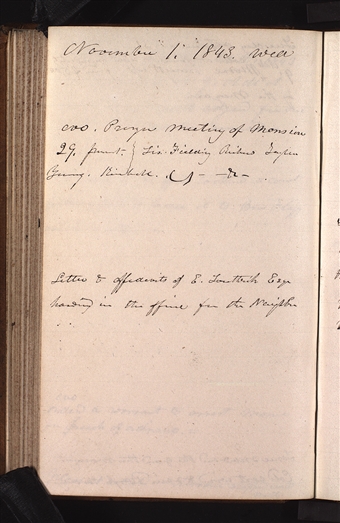 November 1. 1843. Wed
evo. Prayer meeting of Mansion
29. present. } Sis. Fielding Richds Taylor
Young. Kimball.
Letter & affidavits of E. Southwick Esqr
handed in the office for the Neighbor